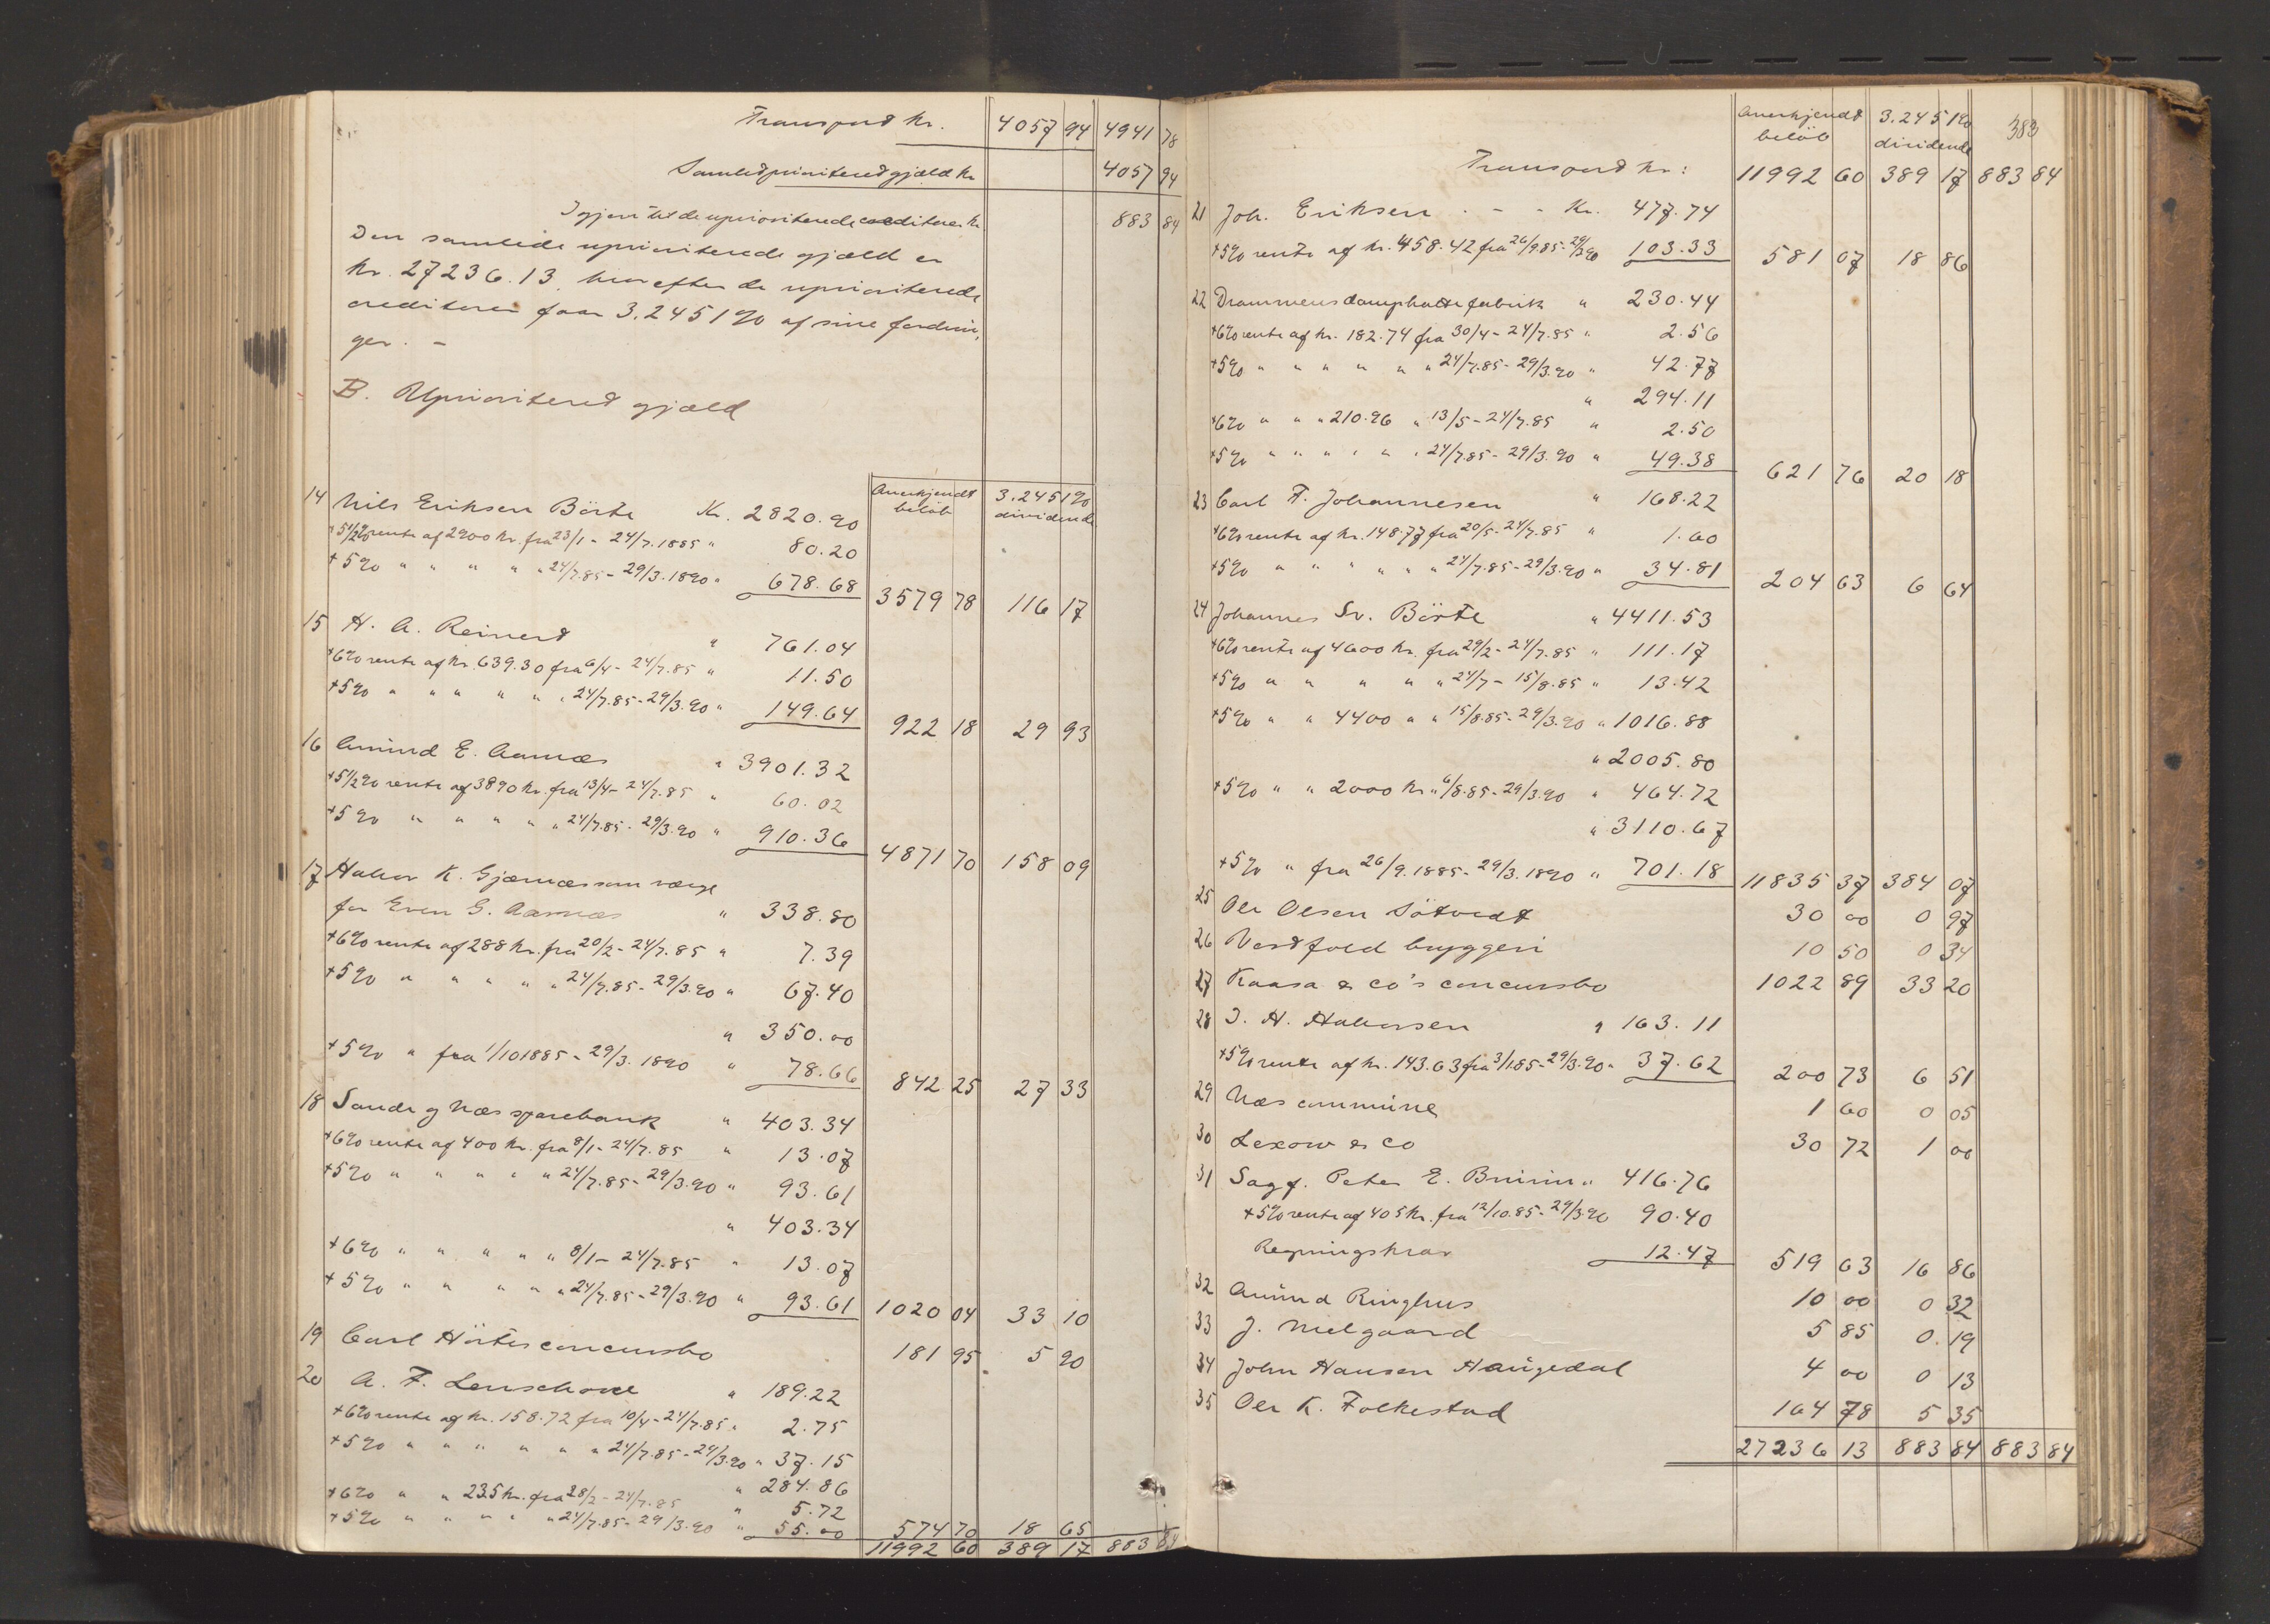 Transport Kr. 4057 94 4941 78
Samlet prioriteret gjæld Kr 4057 94
Igjen til de uprioriterede creditorer Kr 883 84
Den samlede uprioriterede gjæld er
Kr. 27236.13, hvorefter de uprioriterede
creditorer faar 3,2451% af sine fordrin,
ger. -
B. Uprioriteret gjæld
Anerkjendt beløb 3,2451% dividende
14 Nils Eriksen Börte Kr. 2820.90
+5½% rente af 2900 Kr. fra 23/1 - 24/7.1885 " 80.20
+5% " " " " " 24/7.85 - 29/3.1890 " 678.68 3579 78 116 17
15 H. A. Reinert " 761.04
+6% rente af Kr. 639.30 fra 6/4 - 24/7.85 " 11.50
+5% " " " " " 24/7.85 - 29/3.90 " 149.64 922 18 29 93
16 Amund E. Aarnæs " 3901.32
+5½% rente af 3890 Kr. fra 13/4 - 24/7.85 " 60.02
+5% " " " " " 24/7.85 - 29/3.90 " 910.36 4871 70 158 09
17 Halvor K. Gjærnæs som værge
for Even G. Aarnæs " 338.80
+6% rente af 288 Kr. fra 20/2 - 24/7.85 " 7.39
+5% " " " " " 24/7.85 - 29/3.90 " 67.40
" 350.00
+5% " fra 1/10 1885 - 29/3.1890 " 78.66 842 25 27 33
18 Sande og Næs sparebank " 403.34
+6% rente af 400 Kr. fra 8/1 - 24/7.85 " 13.07
+5% " " " " " 24/7.85 - 29/3.90 " 93.61
" 403.34
+6% " " " " " 8/1 - 24/7.85 " 13.07
+5% " " " " " 24/7.85 - 29/3.90 " 93.61 1020 04 33 10
19 Carl Hörtes concursbo 181 95 5 90
20 A. F. Lenschow " 189.22
+6% rente af Kr. 158.72 fra 10/4 - 24/7.85 " 2.75
+5% " " " " " " 24/7.85 - 29/3.90 " 37.15
" 284.86
+6% " " 235 Kr. fra 28/2 - 24/7.85 " 5.72
+5% " " " " " 24/7.85 - 29/3.90 " 55.00 574 70 18 65
11992 60 389 17 883 84
Anerkjendt beløb 3,2451% dividende 383
Transport Kr: 11992 60 389 17 883 84
21 Joh. Eriksen . - - Kr. 477.74
+5% rente af Kr. 458.42 fra 26/9.85 - 29/3.90 103.33 581 07 18 86
22 Drammens damphattefabrik " 230.44
+6% rente af Kr. 182.74 fra 30/4 - 24/7.85 " 2.56
+5% " " " " " " 24/7.85 - 29/3.90 " 42.77
" 294.11
+6% " " " 210.96 " 13/5 - 24/7.85 " 2.50
+5% " " " " " " 24/7.85 - 29/3.90 " 49.38 621 76 20 18
23 Carl F. Johannesen " 168.22
+6% rente af Kr. 148.77 fra 20/5 - 24/7.85 " 1.60
+5% " " " " " " 24/7.85 - 29/3.90 " 34.81 204 63 6 64
24 Johannes Sv. Börte " 4411.53
+6% rente af 4600 Kr. fra 29/2 - 24/7.85 " 111.17
+5% " " " " " 24/7 - 15/8.85 " 13.42
+5% " " 4400 " " 15/8.85 - 29/3.90 " 1016.88
" 2005.80
+5% " " 2000 Kr " 6/8.85 - 29/3.90 " 464.72
" 3110.67
+5% " fra 26/9.1885 - 29/3.1890 " 701.18 11835 37 384 07
25 Ole Olsen Sötvedt 30 00 0 97
26 Vestfold bryggeri 10 50 0 34
27 Kaasa & Co's concursbo 1022 89 33 20
28 I. H. Halvorsen " 163.11
+5% rente af Kr. 143.63 fra 3/1.85 - 29/3.90 " 37.62 200 73 6 51
29 Næs commune 1 60 0 05
30 Lexow & Co 30 72 1 00
31 Sagf. Peter E. Bruun " 416.76
+5% rente af 405 Kr. fra 12/10.85 - 29/3.90 90.40
Regningskrav 12.47 519 63 16 86
32 Amund Ringhus 10 00 0 32
33 J. Melgaard 5 85 0.19
34 John Hansen Haugedal 4 00 0 13
35 Ole K. Folkestad 164 78 5 35
27236 13 883 84 883 84